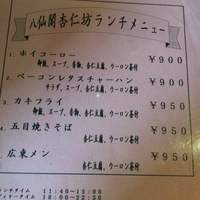 八仙閣杏仁坊ランチメニュー
1. ホイコーロー ￥900
御飯、スープ、香物、杏仁豆腐、ウーロン茶付
2. ベーコンレタスチャーハン ￥900
サラダ、スープ、杏仁豆腐、ウーロン茶付
3. カキフライ ￥950
御飯、スープ、香物、杏仁豆腐、ウーロン茶付
4. 五目焼きそば ￥950
杏仁豆腐、ウーロン茶付
5. 広東メン ￥950
杏仁豆腐、ウーロン茶付
ランチタイム 11:40~15:00